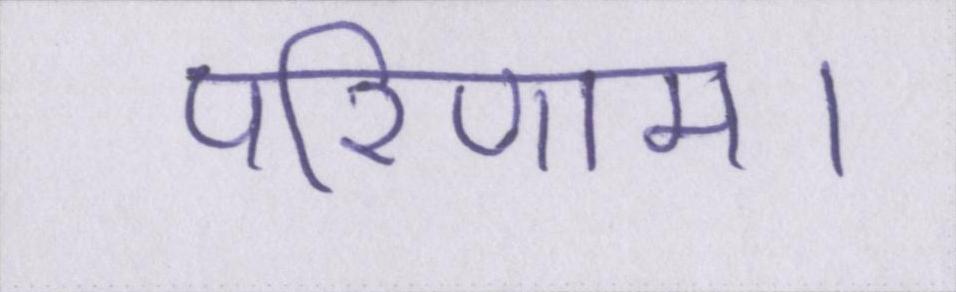 परिणाम।